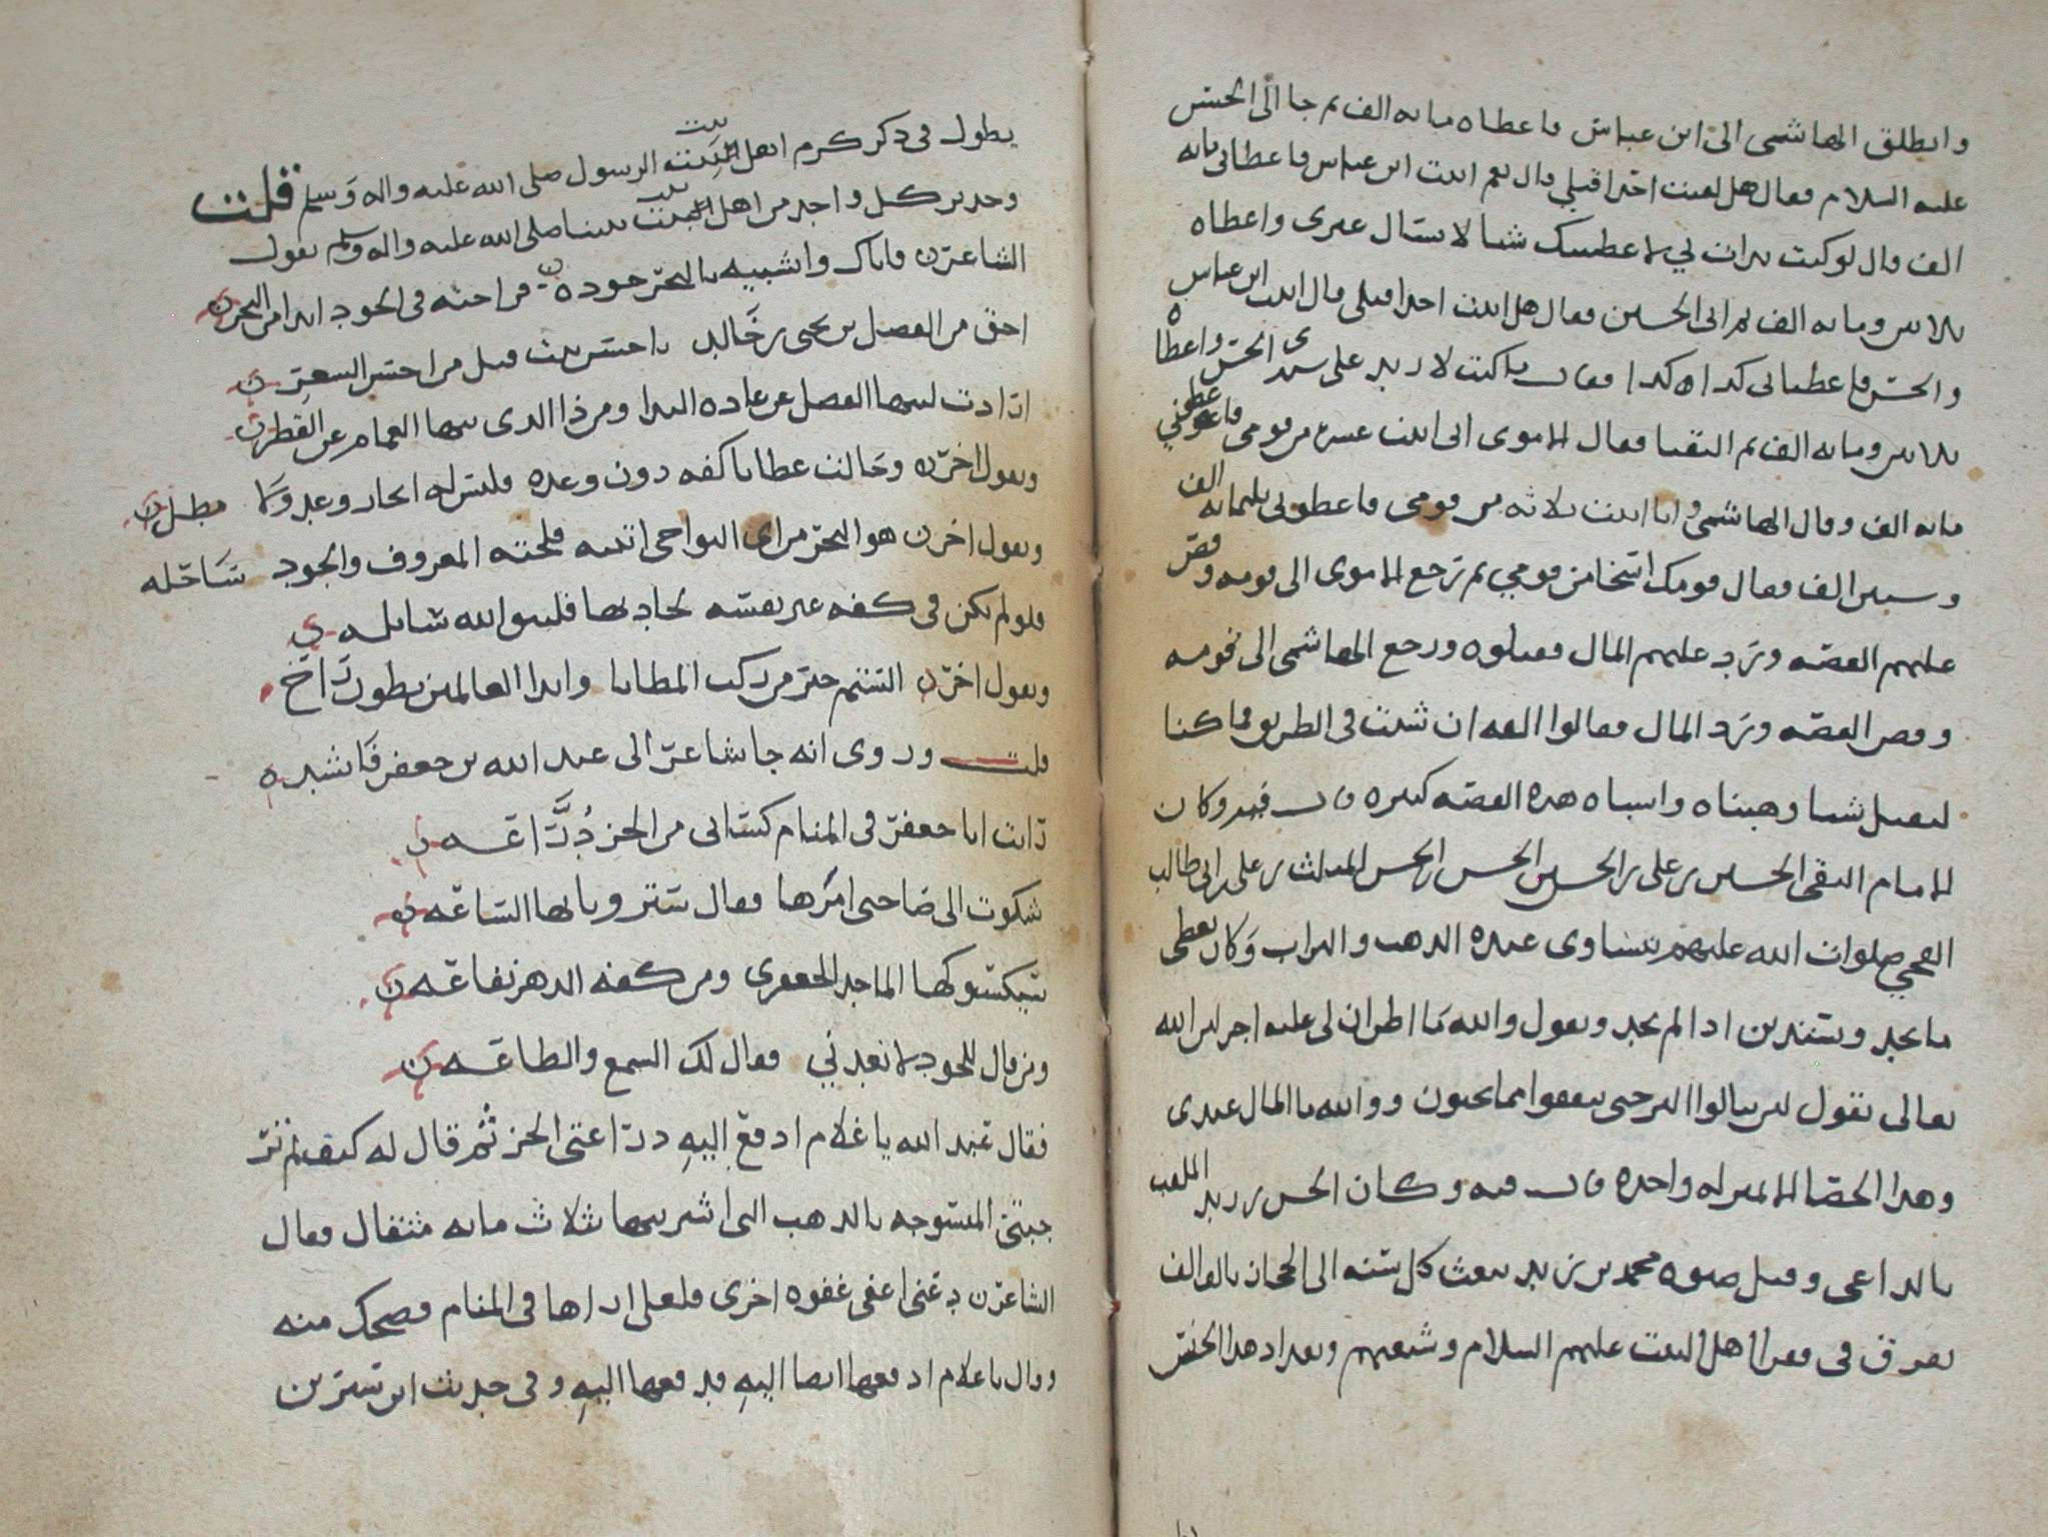 وانطلق الهاشمى الى ابن عباس فاعطاه مايه الف ثم جا الى الحسن
عليه السلام فقال هل لقيت احدا قبلي قال نعم اتيت ابن عباس فاعطاني مايه
الف قال لو كنت بدات بي لاعطيتك شيا لا تسال غيرى واعطاه
ثلاثين ومايه الف ثم اتى الحسين فقال هل اتيت احدا قبلى قال اتيت ابن عباس
والحسن فاعطيانى كذا وكذا فقال ما كنت لازيد على سيدى الحسن واعطاه
ثلاثين ومايه الف ثم التقيا فقال الاموى انى اتيت عشره من قومى فاعطوني
مايه الف وقال الهاشمى وانا اتيت ثلاثه من قومى فاعطونى ثلثمايه الف
وستين الف فقال قومك اسخا من قومي ثم رجع الاموى الى قومه وقص
عليهم القصه ورد عليهم المال فقبلوه ورجع الهاشمى الى قومه
وقص القصه ورد المال فقالوا القه ان شئت فى الطريق فما كنا
لنقبل شيا وهبناه واشباه هذه القصه كثيره قال فيه وكان
الامام التقى الحسين بن على بن الحسين بن الحسن بن الحسن المثلث بن على بن ابى طالب
الفخي صلوات الله عليهم يتساوى عنده الذهب والتراب وكان يعطى
ما يجد ويستدين اذا لم يجد ويقول والله ما اظن ان لى عليه اجر لان الله
تعالى يقول لن تنالوا البر حتى تنفقوا مما تحبون ووالله ما المال عندى
وهذا الحصا الا بمنزله واحده قال فيه وكان الحسن بن زيد الملقب
بالداعى وقيل صنوه محمد بن زيد يبعث كل سنه الى الحجاز بالف الف
يفرق فى فقرا اهل البيت عليهم السلام وشيعتهم وتعداد هذا الجنس
يطول فى ذكر كرم اهل بيت الرسول صلى الله عليه واله وسلم قلت
وجدير كل واحد من اهل بيت نبينا صلى الله عليه واله وسلم بقول
الشاعر فاياك واشبيه بالبحر جوده فراحته فى الجود اندا من البحر
احق من الفضل بن يحيى بن خالد باحسن بيت قيل من احسن الشعر
اذا دت لينهيها الفضل عن عاده الندا ومن ذا الذى ينها الغمام عن القطر
ويقول اخر وحالت عطايا كفه دون وعده فليس له انجاز وعد ولا مطل
ويقول اخر هو البحر من اى النواحى اتيته فلجته المعروف والجود ساحله
فلو لم يكن فى كفه غير نفسه لجاد بها فليتق الله سائله
ويقول اخر الستم خير من ركب المطايا واندا العالمين بطون راح
قلت وروى انه جا شاعر الى عبد الله بن جعفر فانشده
رايت ابا جعفر فى المنام كسانى من الخز دراعه
شكوت الى صاحبى امرها فقال ستروا بها الساعه
سيكسوكها الماجد الجعفرى ومن كفه الدهر نفاعه
ومن قال للجود لا تعدني فقال لك السمع والطاعه
فقال عبد الله يا غلام ادفع اليه دراعتى الخز ثم قال له كيف لم تر
جبتى المنسوجه بالذهب التى اشتريتها بثلاث مايه مثقال فقال
الشاعر دعنى اغفى غفوه اخرى فلعلى اراها فى المنام فضحك منه
وقال يا غلام ادفعها ايضا اليه فدفعها اليه وفى حديث ابن سيرين